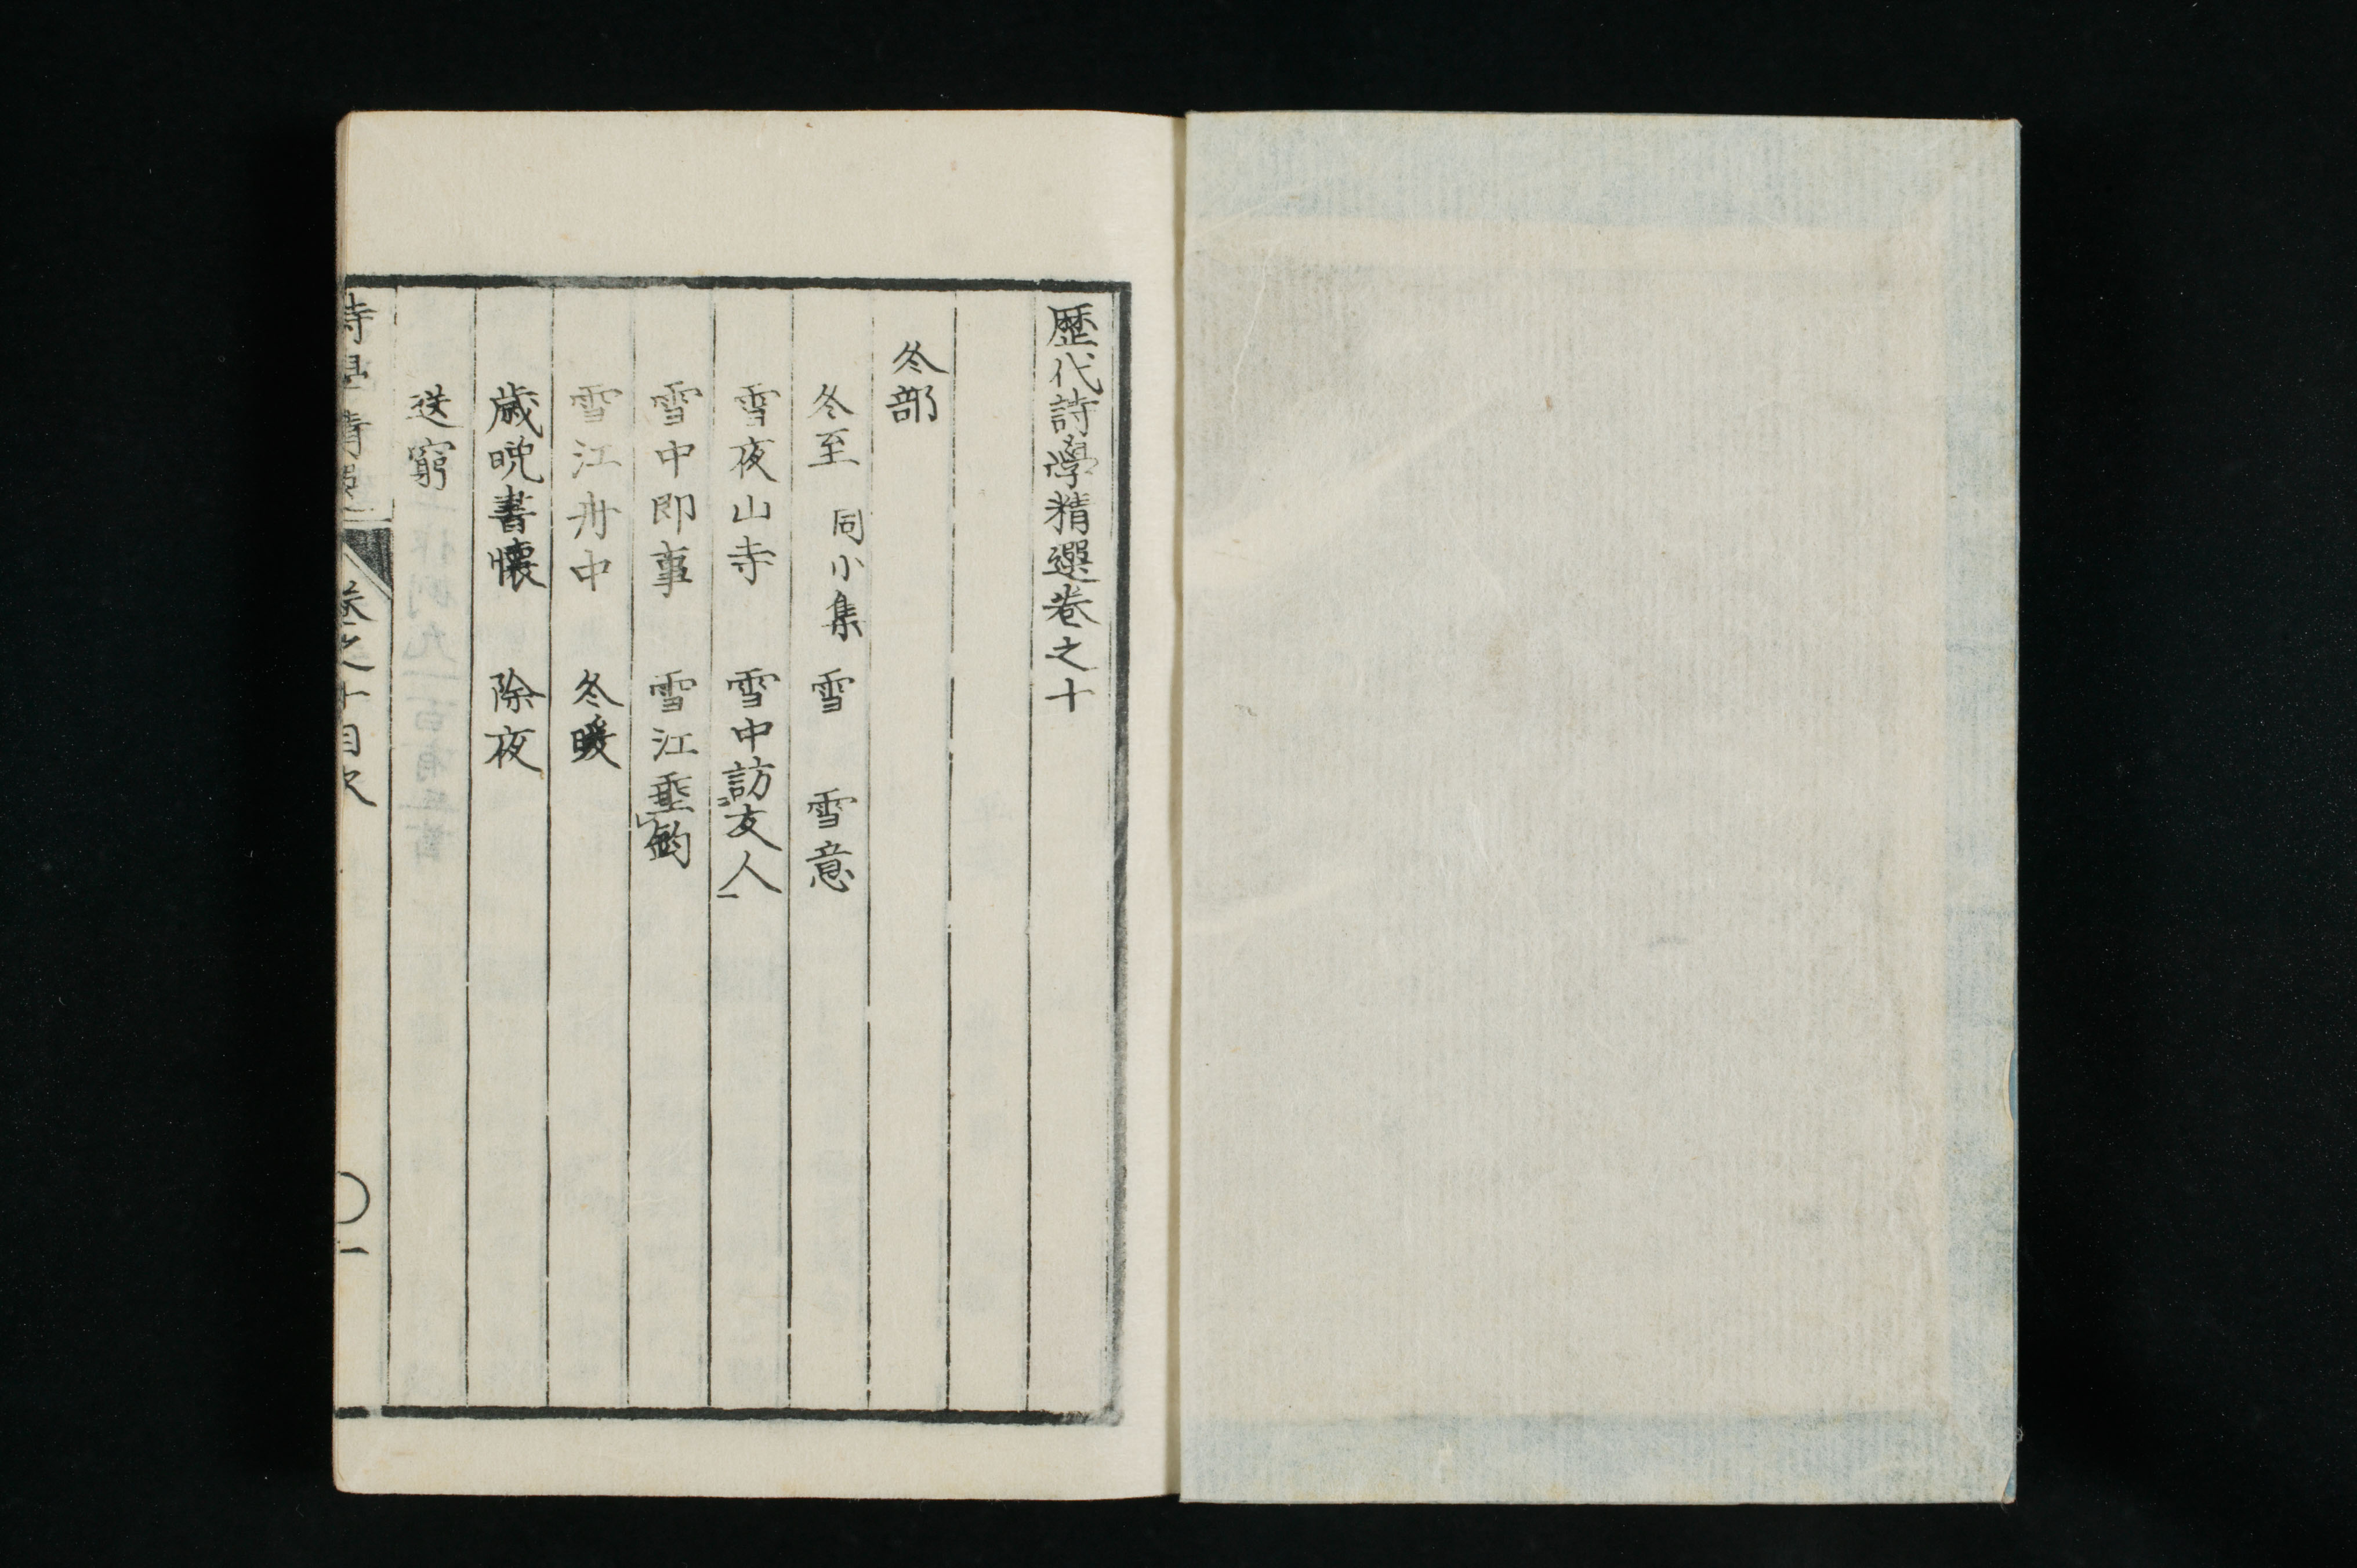 歴代詩學精選卷之十
冬部
冬至 同小集 雪 雪意
雪夜山寺 雪中訪友人
雪中即事 雪江垂釣
雪江舟中 冬暖
歲晩書懷 除夜
送窮
詩學精選 卷之十目次 〇一